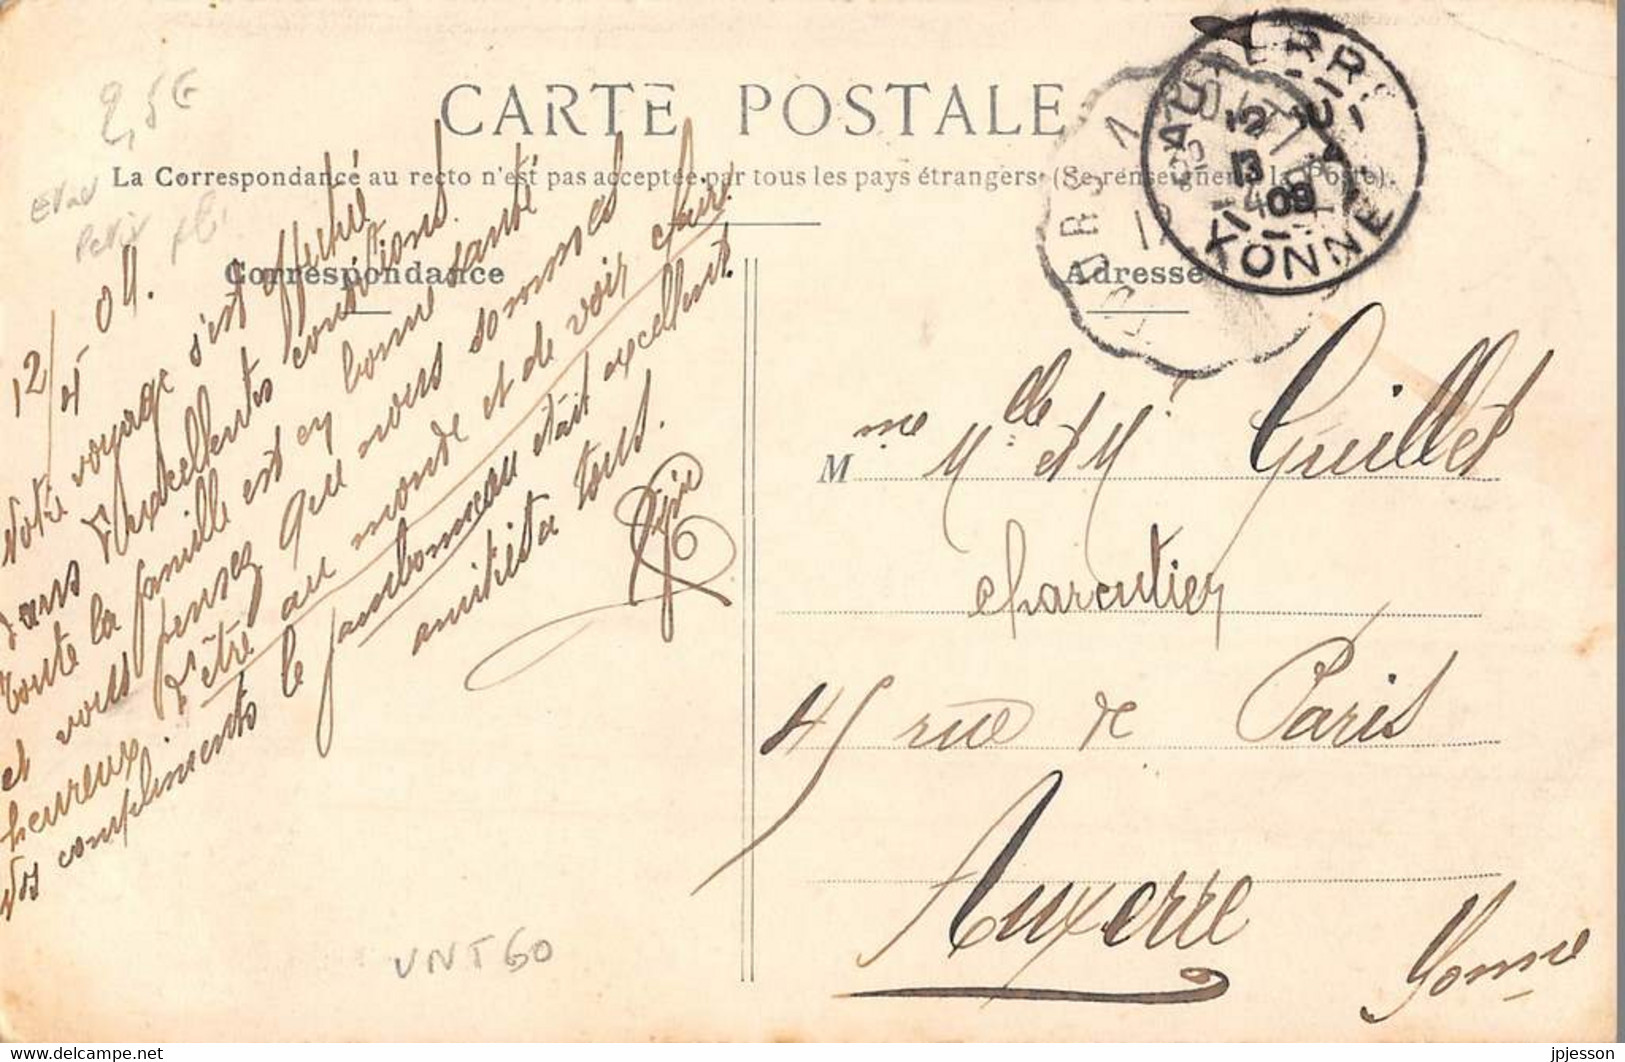 2,5€
CARTE POSTALE
La Correspondance au recto n'est pas acceptée par tous les pays étrangers (Se renseigner à la Poste).
Correspondance
Adresse
AUXERRE
12
13
4
09
YONNE
12/4 09.
Notre voyage s'est effectué
dans d'excellentes conditions.
Toute la famille est en bonne santé
et vous pensez que nous sommes
heureux d'être au monde et de voir clair.
Nos compliments le jambonneau était excellent.
amitiés à tous.
Mme Mlle et Mr Guillet
charcutier
45 rue de Paris
Auxerre
Yonne
VNT60
jpjesson